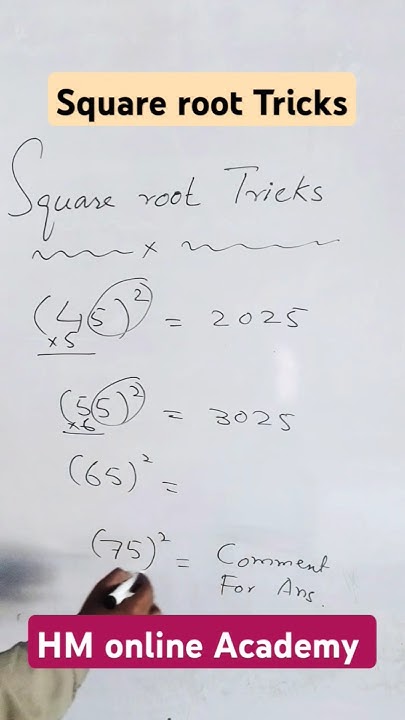 Square root Tricks
Square root Tricks
x
(45)² = 2025
×5
(55)² = 3025
×6
(65)² =
(75)² = Comment
For Ans.
HM online Academy